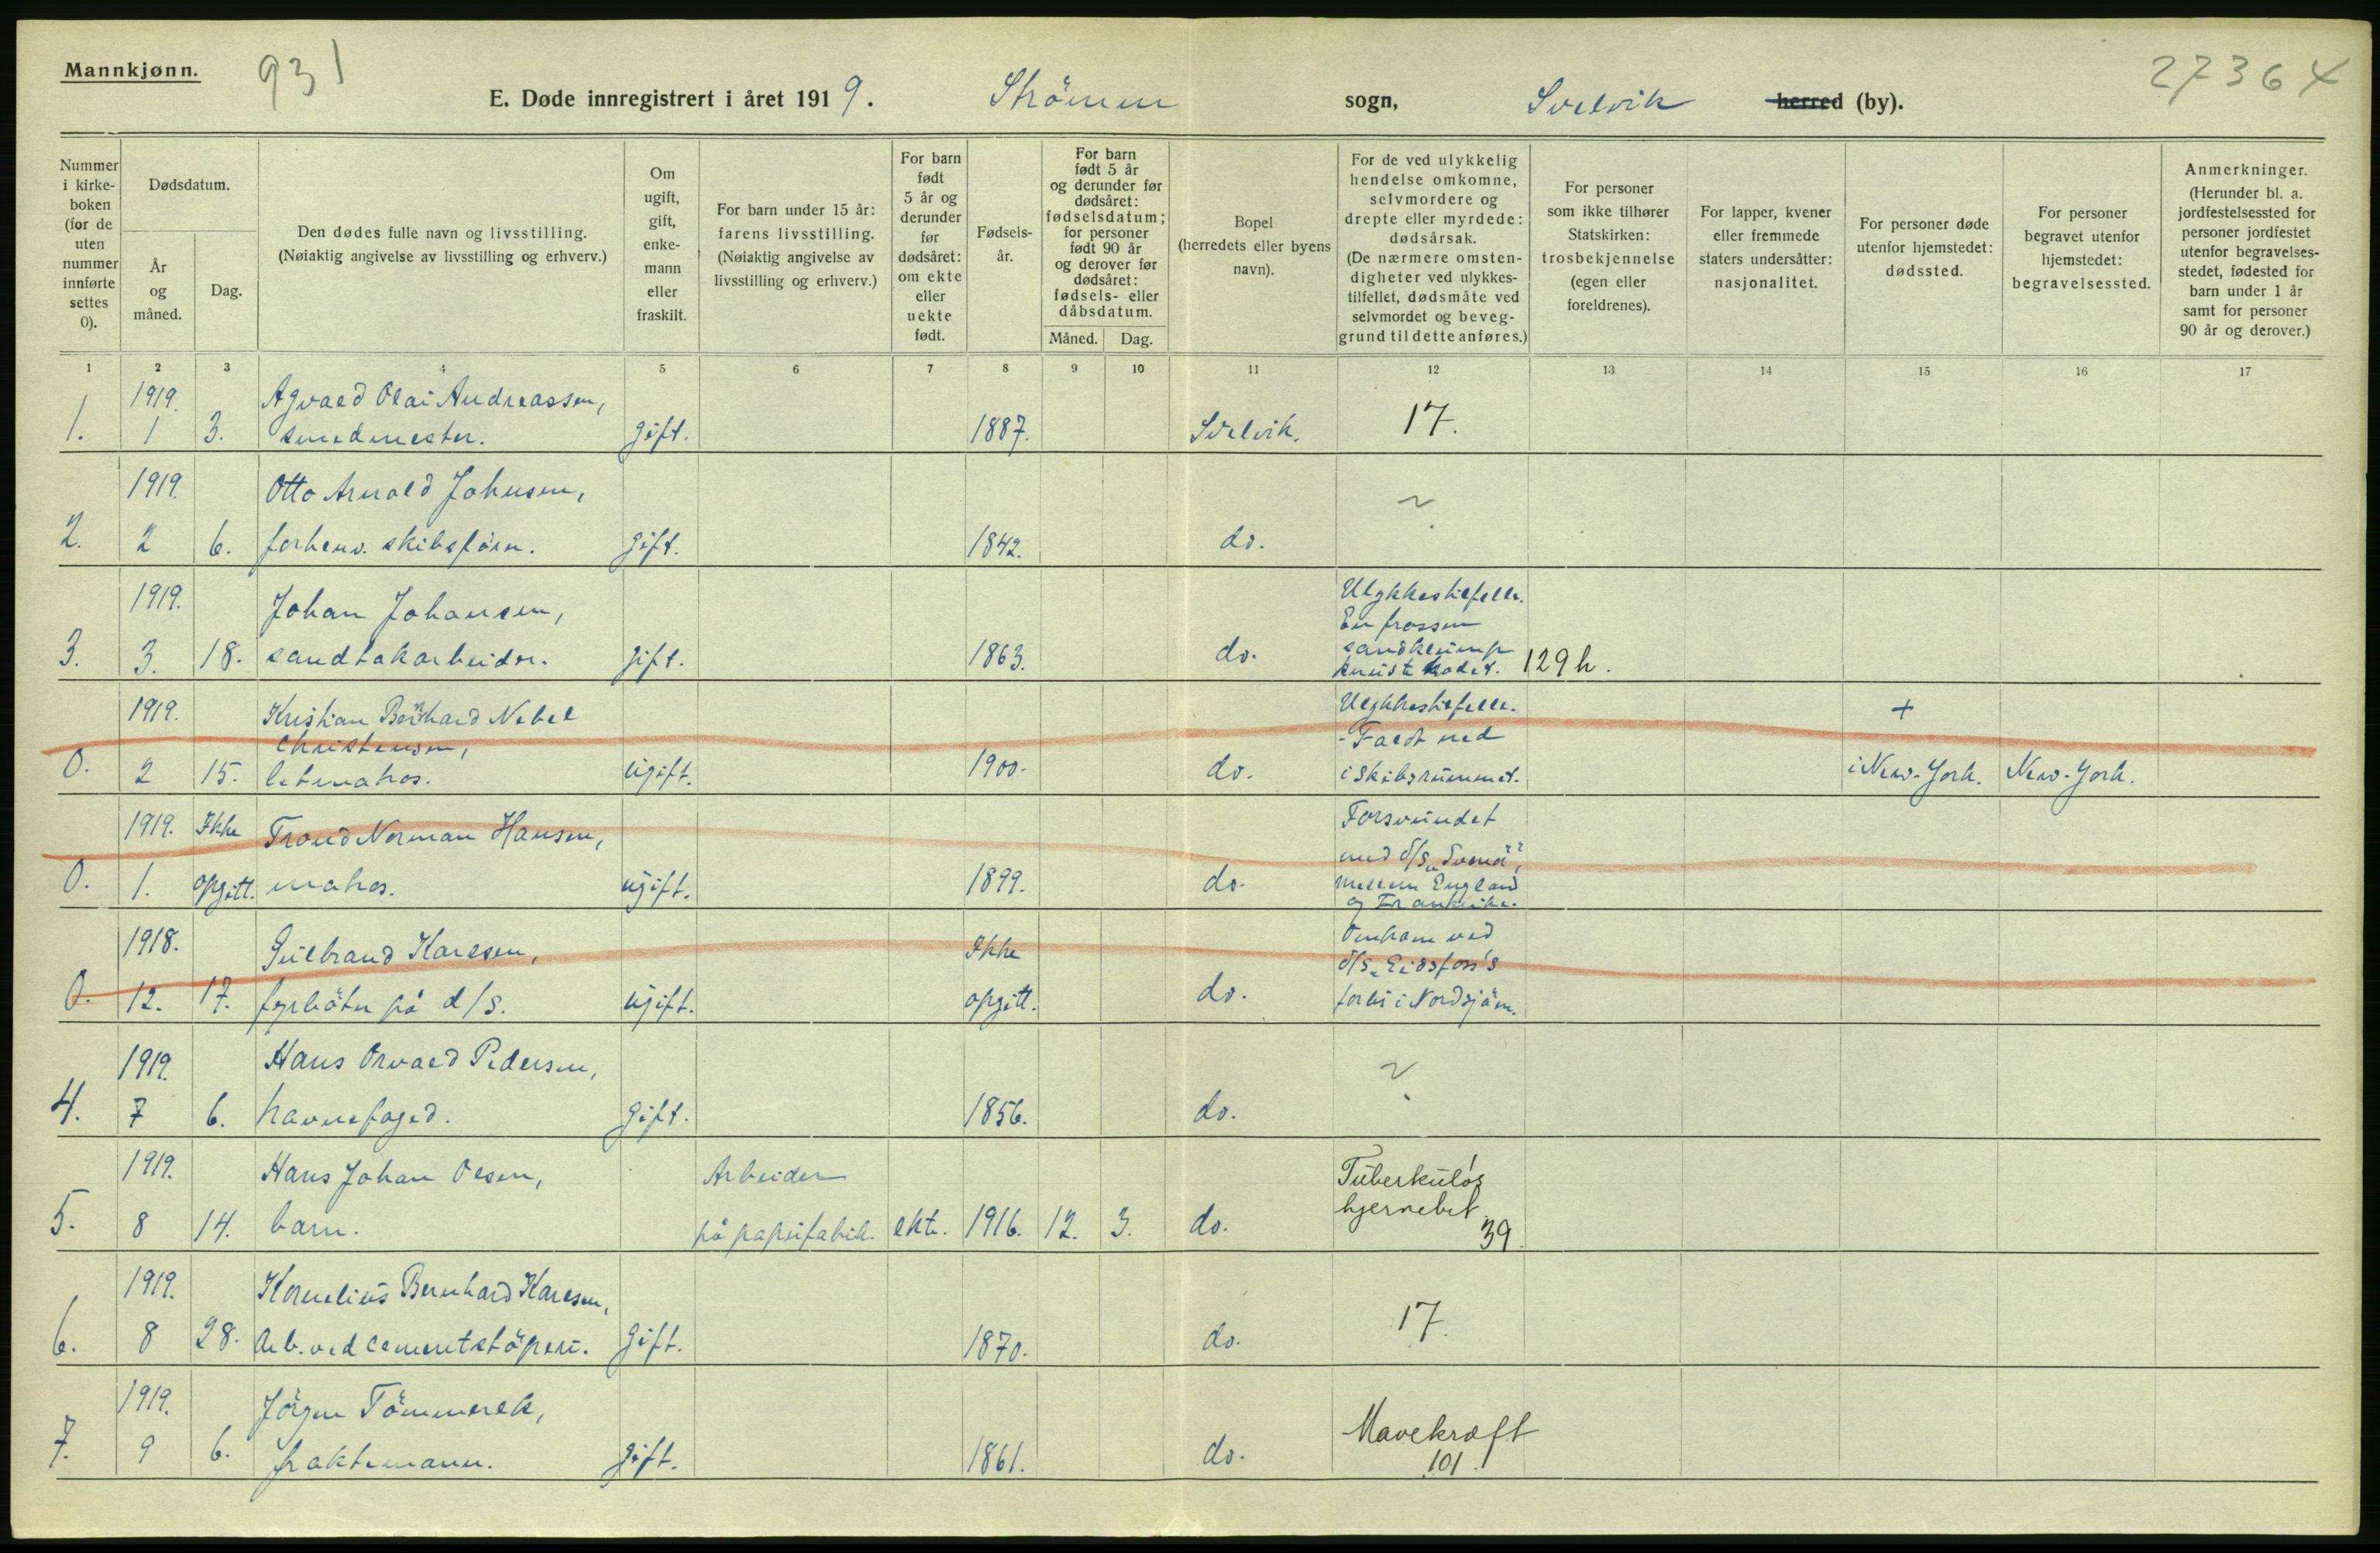 Mannkjønn.
931
27364
E. Døde innregistrert i året 1919. Strömm sogn, Svelvik herred (by).
Nummer i kirke-boken (for de uten nummer innførte settes 0).
Dødsdatum.
År og måned.
Dag.
Den dødes fulle navn og livsstilling.
(Nøiaktig angivelse av livsstilling og erhverv.)
Om ugift, gift, enke-mann eller fraskilt.
For barn under 15 år: farens livsstilling.
(Nøiaktig angivelse av livsstilling og erhverv.)
For barn født 5 år og derunder før dødsåret: om ekte eller uekte født.
Fødsels-år.
For barn født 5 år og derunder før dødsåret: fødselsdatum; for personer født 90 år og derover før dødsåret: fødsels- eller dåbsdatum.
Måned. Dag.
Bopel (herredets eller byens navn).
For de ved ulykkelig hendelse omkomne, selvmordere og drepte eller myrdede: dødsårsak.
(De nærmere omsten-digheter ved ulykkes-tilfellet, dødsmåte ved selvmordet og beveg-grund til dette anføres.)
For personer som ikke tilhører Statskirken: trosbekjennelse (egen eller foreldrenes).
For lapper, kvener eller fremmede staters undersåtter: nasjonalitet.
For personer døde utenfor hjemstedet: dødssted.
For personer begravet utenfor hjemstedet: begravelsessted.
Anmerkninger.
(Herunder bl. a. jordfestelsessted for personer jordfestet utenfor begravelses-stedet, fødested for barn under 1 år samt for personer 90 år og derover.)
1 2 3 4 5 6 7 8 9 10 11 12 13 14 15 16 17
1919. Agvald Olai Andreassen,
1. 1 3. smedmester. gift. 1887. Svelvik. 17.
1919. Otto Arnold Johnsen,
2. 2 6. forhenv. skibsförer. gift. 1842. do. ?
1919. Johan Johansen, Ulykkestilfelle. En frossen
3. 3. 18. sandtakarbeider. gift. 1863. do. sandklump knuste hodet. 129 h.
1919. Kristian Bernhard Nebel Ulykkestilfelle. +
Christensen, - Faldt ned
0. 2 15. letmatros. ugift. 1900. do. i skibsrummet. i New-York. New-York.
1919. Ikke Trond Norman Hansen, Forsvundet
med d/s
0. 1. opgitt. matros. ugift. 1899. do. mellem England og Frankrike.
1918. Gulbrand Karlsen, Ikke Omkom ved
d/s „Eidsfos's
0. 12. 17. fyrböter på d/s. ugift. opgitt. do. forlis i Nordsjöen.
1919. Hans Orvald Pedersen, ?
4. 7 6. havnefoged. gift. 1856. do.
1919. Hans Johan Olsen, Arbeider Tuberkuløs
5. 8 14. barn. på papirfabrik. ekte. 1916. 12. 3. do. hjernebet. 39.
1919. Kornelius Bernhard Karlsen,
6. 8 28. Arb. ved cementstöperi. gift. 1870. do. 17.
1919. Jörgen Tömmerek, Mavekræft
7. 9 6. fraktemann. gift. 1861. do. 101.